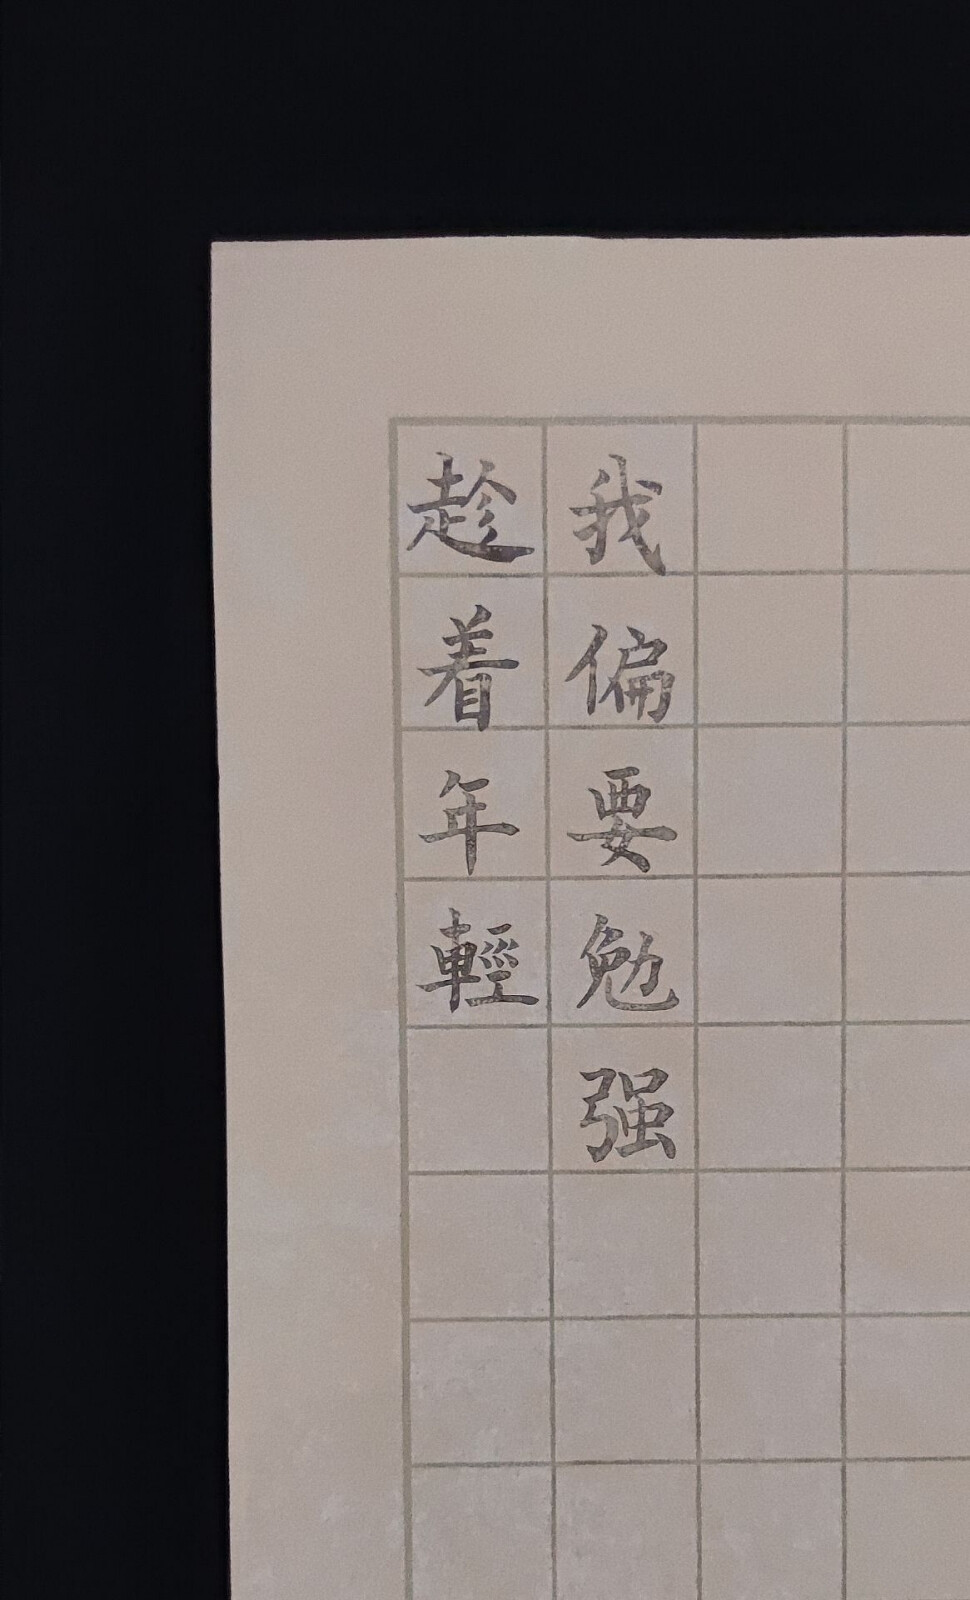 趁着年輕
我偏要勉强